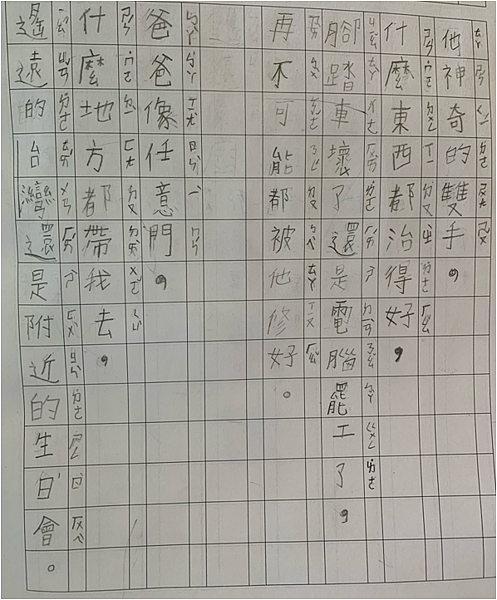 他神奇的雙手，
什麼東西都治得好，
腳踏車壞了還是電腦罷工了，
再不可能都被他修好。
爸爸像任意門，
什麼地方都帶我去，
遙遠的台灣還是附近的生日會。